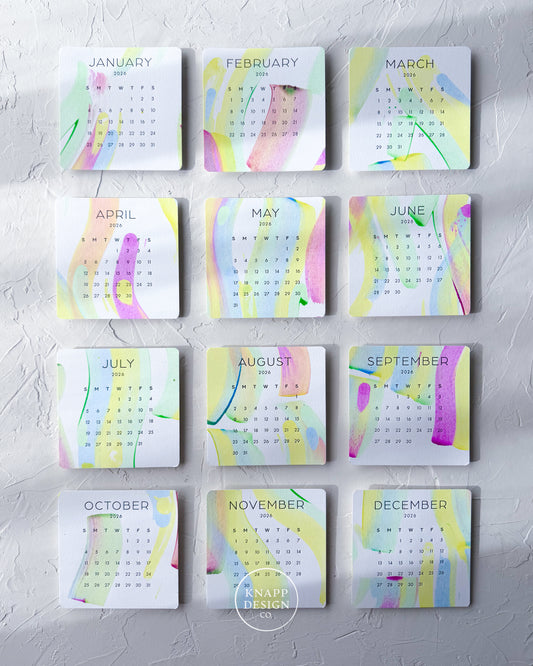 JANUARY
2026
S M T W T F S
1 2 3
4 5 6 7 8 9 10
11 12 13 14 15 16 17
18 19 20 21 22 23 24
25 26 27 28 29 30 31
FEBRUARY
2026
S M T W T F S
1 2 3 4 5 6 7
8 9 10 11 12 13 14
15 16 17 18 19 20 21
22 23 24 25 26 27 28
MARCH
2026
S M T W T F S
1 2 3 4 5 6 7
8 9 10 11 12 13 14
15 16 17 18 19 20 21
22 23 24 25 26 27 28
29 30 31
APRIL
2026
S M T W T F S
1 2 3 4
5 6 7 8 9 10 11
12 13 14 15 16 17 18
19 20 21 22 23 24 25
26 27 28 29 30
MAY
2026
S M T W T F S
1 2
3 4 5 6 7 8 9
10 11 12 13 14 15 16
17 18 19 20 21 22 23
24 25 26 27 28 29 30
31
JUNE
2026
S M T W T F S
1 2 3 4 5 6
7 8 9 10 11 12 13
14 15 16 17 18 19 20
21 22 23 24 25 26 27
28 29 30
JULY
2026
S M T W T F S
1 2 3 4
5 6 7 8 9 10 11
12 13 14 15 16 17 18
19 20 21 22 23 24 25
26 27 28 29 30 31
AUGUST
2026
S M T W T F S
1
2 3 4 5 6 7 8
9 10 11 12 13 14 15
16 17 18 19 20 21 22
23 24 25 26 27 28 29
30 31
SEPTEMBER
2026
S M T W T F S
1 2 3 4 5
6 7 8 9 10 11 12
13 14 15 16 17 18 19
20 21 22 23 24 25 26
27 28 29 30
OCTOBER
2026
S M T W T F S
1 2 3
4 5 6 7 8 9 10
11 12 13 14 15 16 17
18 19 20 21 22 23 24
25 26 27 28 29 30 31
NOVEMBER
2026
S M T W T F S
1 2 3 4 5 6 7
8 9 10 11 12 13 14
15 16 17 18 19 20 21
22 23 24 25 26 27 28
29 30
DECEMBER
2026
S M T W T F S
1 2 3 4 5
6 7 8 9 10 11 12
13 14 15 16 17 18 19
20 21 22 23 24 25 26
27 28 29 30 31
KNAPP
DESIGN
CO.